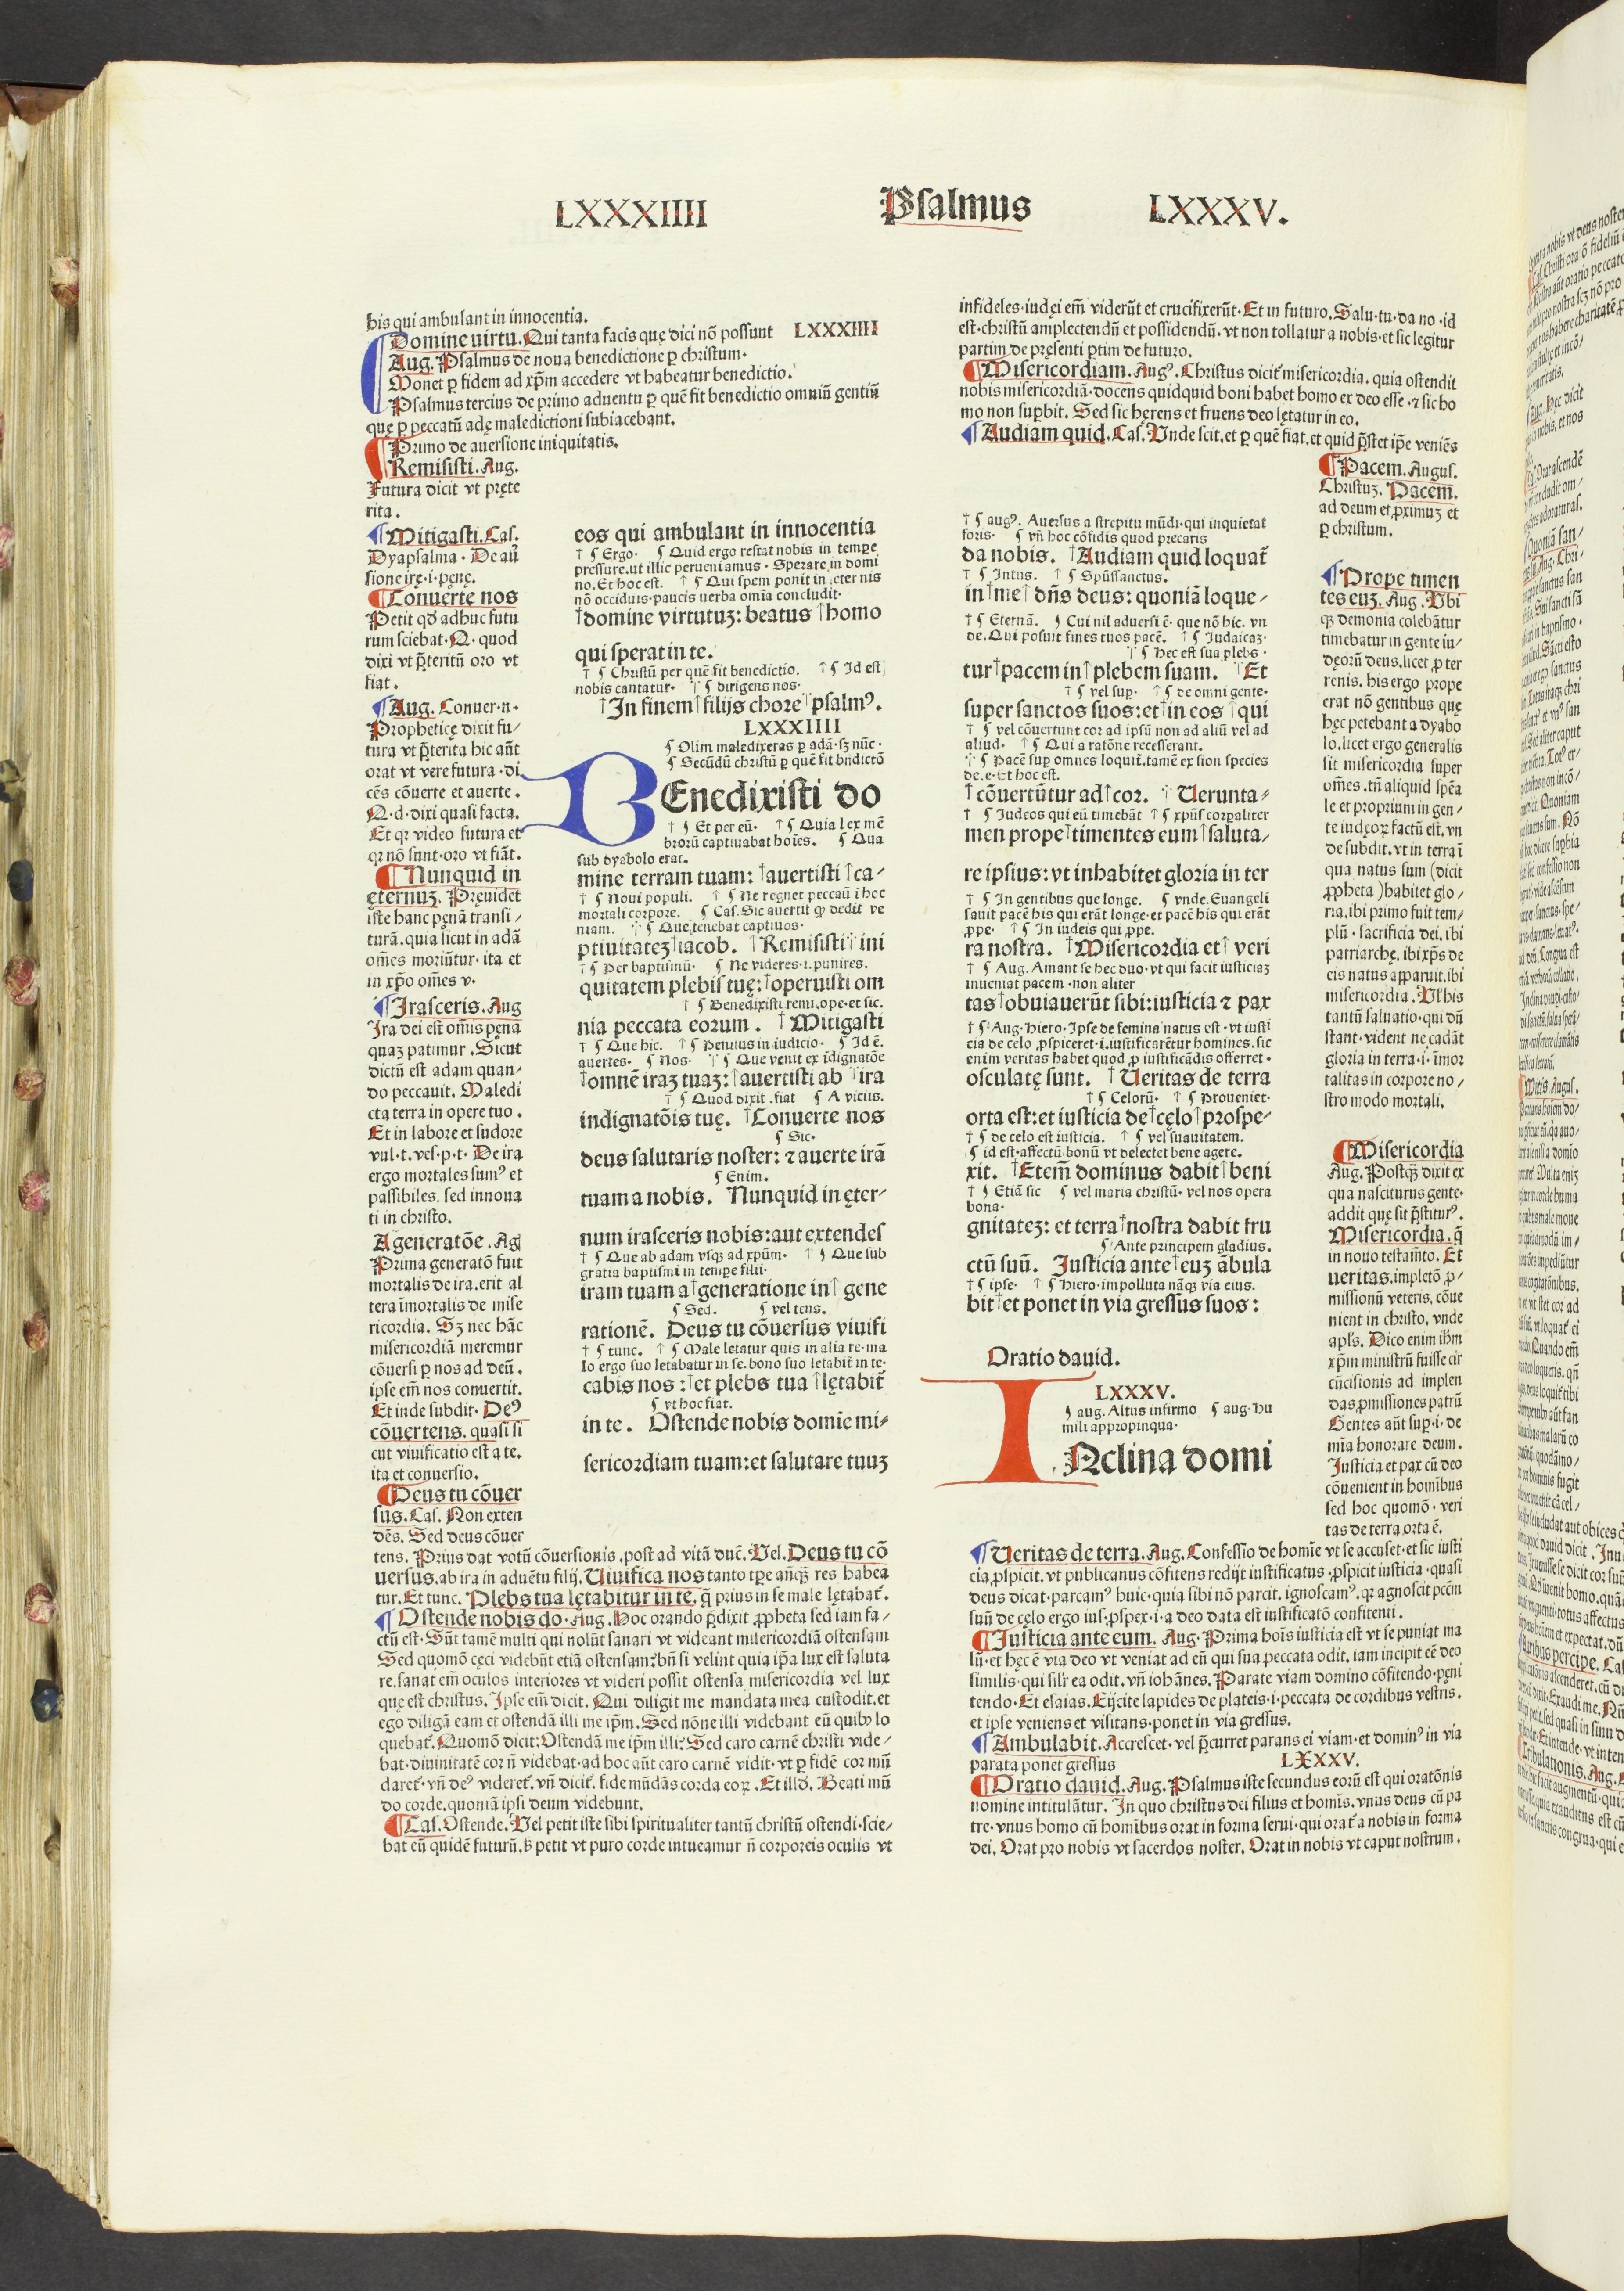 LXXXIIII Psalmus LXXXV.
his qui ambulant in innocentia.
Domine uirtu. Qui tanta facis quę dici nō possunt LXXXIIII
Aug. Psalmus de noua benedictione ꝑ christum.
Monet ꝑ fidem ad xp̄m accedere vt habeatur benedictio.
Psalmus tercius de primo aduentu ꝑ quē fit benedictio omniū gentiū
quę ꝑ peccatū adę maledictioni subiacebant.
Primo de auersione iniquitatis.
¶ Remisisti. Aug.
Futura dicit vt pręte
rita.
¶ Mitigasti. Cas.
Dyapsalma. De aū
sione irę.i.pęnę.
¶ Conuerte nos
Petit qđ adhuc futu
rum sciebat. Q. quod
dixi vt p̄teritū oro vt
fiat.
¶ Aug. Conuer.n.
Propheticę dixit fu/
tura vt p̄terita hic aūt
orat vt vere futura. di
cēs cōuerte et auerte.
Q.d. dixi quasi facta.
Et qꝛ video futura et
qꝛ nō sunt. oro vt fiāt.
¶ Nunquid in
ęternuʒ. Pręuidet
iste hanc pęnā transi/
turā. quia sicut in adā
om̄es moriūtur. ita et
in xp̄o om̄es v.
¶ Irasceris. Aug
Ira dei est om̄is pęna
quaʒ patimur. Sicut
dictū est adam quan/
do peccauit. Maledi
cta terra in opere tuo.
Et in labore et sudore
vul.t. ves.p.t. De ira
ergo mortales sumꝰ et
passibiles. sed innoua
ti in christo.
A generatōe. Ag
Prima generatō fuit
mortalis de ira. erit al
tera īmortalis de mise
ricordia. Sʒ nec hāc
misericordiā meremur
cōuersi ꝑ nos ad deū.
ipse em̄ nos conuertit.
Et inde subdit. Deꝰ
cōuertens. quasi si
cut viuificatio est a te.
ita et conuersio.
¶ Deus tu cōuer
sus. Cas. Non exten
dēs. Sed deus cōuer
tens. Prius dat votū cōuersionis. post ad vitā ducē. Vel. Deus tu cō
uersus. ab ira in aduētu filij. Viuifica nos tanto tꝑe añqʒ res habea
tur. Et tunc. Plebs tua lętabitur in te. q̄ prius in se male lętabat̄.
¶ Ostende nobis do. Aug. Hoc orando p̄dixit ꝓpheta sed iam fa/
ctū est. Sūt tamē multi qui nolūt sanari vt videant misericordiā ostensam
Sed quomō cęci videbūt etiā ostensam: bn̄ si velint quia ip̄a lux est saluta
re. sanat em̄ oculos interiores vt videri possit ostensa misericordia vel lux
quę est christus. Ipse em̄ dicit. Qui diligit me mandata mea custodit. et
ego diligā eam et ostendā illi me ip̄m. Sed nōne illi videbant eū quibꝰ lo
quebat̄. Quomō dicit: Ostendā me ip̄m illi: Sed caro carnē christi vide/
bat. diuinitatē cor ñ videbat. ad hoc aūt caro carnē vidit. vt ꝑ fidē cor mū
daret̄. vn̄ deꝰ videret̄. vn̄ dicit̄. fide mūdās corda eoꝝ. Et illđ. Beati mū
do corde. quoniā ipsi deum videbunt.
¶ Cas. Ostende. Vel petit iste sibi spiritualiter tantū christū ostendi. scie/
bat eū quidē futurū. ß petit vt puro corde intueamur ñ corporeis oculis vt
eos qui ambulant in innocentia
† ¶ Ergo. ¶ Quid ergo restat nobis in tempe
pressure. ut illic perueniamus. Sperare in domi
no. Et hoc est. † ¶ Qui spem ponit in eter nis
nō occiduis. paucis uerba omīa concludit.
†domine virtutuʒ: beatus †homo
qui sperat in te.
† ¶ Christū per quē fit benedictio. † ¶ Id est
nobis cantatur. † ¶ dirigens nos.
†In finem †filijs chore †psalmꝰ.
LXXXIIII
¶ Olim maledixeras ꝑ adā. sʒ nūc.
¶ Secūdū christū ꝑ quē fit bn̄dictō
BEnedixisti do
† ¶ Et per eū. † ¶ Quia lex mē
brorū captiuabat hoīes. ¶ Qua
sub dyabolo erat.
mine terram tuam: †auertisti †ca/
† ¶ Noui populi. † ¶ Ne regnet peccatū i hoc
mortali corpore. ¶ Cas. Sic auertit qꝫ dedit ve
niam. † ¶ Que tenebat captiuos.
ptiuitateʒ †iacob. †Remisisti †ini
† ¶ Per baptismū. ¶ Ne videres.i.punires.
quitatem plebis tuę: †operuisti om
† ¶ Benedixisti remi.ope.et sic.
nia peccata eorum. †Mitigasti
† ¶ Que hic. † ¶ Penitus in iudicio. ¶ Id ē.
auertes. ¶ Nos. † ¶ Que venit ex īdignatōe
†omnē iraʒ tuaʒ: †auertisti ab †ira
† ¶ Quod dixit. fiat ¶ A viciis.
indignatōis tuę. †Conuerte nos
¶ Sic.
deus salutaris noster: ⁊ auerte irā
¶ Enim.
tuam a nobis. Nunquid in ęter-
num irasceris nobis: aut extendes
† ¶ Que ab adam vsqʒ ad xpūm. † ¶ Que sub
gratia baptismi in tempe filii.
iram tuam a †generatione in † gene
¶ Sed. ¶ vel tens.
rationē. Deus tu cōuersus viuifi
† ¶ tunc. † ¶ Male letatur quis in alia re. ma
lo ergo suo letabatur in se. bono suo letabit̄ in te.
cabis nos: †et plebs tua †lętabit̄
¶ vt hoc fiat.
in te. Ostende nobis domīe mi-
sericordiam tuam: et salutare tuuʒ
infideles. iudęi em̄ viderūt et crucifixerūt. Et in futuro. Salu. tu. da no. id
est. christū amplectendū et possidendū. vt non tollatur a nobis. et sic legitur
partim de pręsenti ꝑtim de futuro.
¶ Misericordiam. Augꝰ. Christus dicit̄ misericordia. quia ostendit
nobis misericordiā. docens quidquid boni habet homo ex deo esse. ⁊ sic ho
mo non supbit. Sed sic hęrens et fruens deo lętatur in eo.
¶ Audiam quid. Cas. Vnde scit. et ꝑ quē fiat. et quid p̄stet ip̄e veniēs
† ¶ augꝰ. Auersus a strepitu mūdi. qui inquietat
foris. ¶ vn̄ hoc cōfidis quod precaris
da nobis. †Audiam quid loquat̄
† ¶ Intus. † ¶ Spūssanctus.
in †me † dn̄s deus: quoniā loque/
† ¶ Eternā. ¶ Cui nil aduersi ē. que nō hic. vn
de. Qui posuit fines tuos pacē. † ¶ Judaicaʒ.
† ¶ Hec est sua plebs.
tur †pacem in †plebem suam. †Et
† ¶ vel sup. † ¶ de omni gente.
super sanctos suos: et †in eos †qui
† ¶ vel cōuertunt cor ad ipsū non ad aliū vel ad
aliud. † ¶ Qui a ratōne recesserant.
† ¶ Pacē sup omnes loquit̄. tamē ex sion species
de.e. Et hoc est.
†cōuertūtur ad †cor. †Uerunta-
† ¶ Judeos qui eū timebāt † ¶ xpūs corꝑaliter
men prope †timentes eum †saluta/
re ipsius: vt inhabitet gloria in ter
† ¶ In gentibus que longe. ¶ vnde. Euangeli
sauit pacē his qui erāt longe. et pacē his qui erāt
ꝓpe. † ¶ In iudeis qui ꝓpe.
ra nostra. †Misericordia et † veri
† ¶ Aug. Amant se hec duo. vt qui facit iusticiaʒ
inueniat pacem. non aliter
tas †obuiauerūt sibi: iusticia ⁊ pax
† ¶ Aug. Hiero. Ipse de femina natus est. vt iusti
cia de celo ꝓspiceret. i. iustificarētur homines. sic
enim veritas habet quod ꝓ iustificādis offerret.
osculatę sunt. †Ueritas de terra
† ¶ Celorū. † ¶ Proueniet.
orta est: et iusticia de †cęlo †prospe-
† ¶ de celo est iusticia. † ¶ vel suauitatem.
¶ id est. affectū bonū vt delectet bene agere.
xit. †Etem̄ dominus dabit †beni
† ¶ Etiā sic ¶ vel maria christū. vel nos opera
bona.
gnitateʒ: et terra †nostra dabit fru
¶ Ante principem gladius.
ctū suū. Justicia ante †euʒ ābula
† ¶ ipse. † ¶ Hiero. impolluta nāqʒ via eius.
bit †et ponet in via gressus suos:
Oratio dauid.
LXXXV.
¶ aug. Altus infirmo ¶ aug. hu
mili appropinqua.
INclina domi
¶ Pacem. Augus.
Christuʒ. Pacem.
ad deum et ꝓximuʒ et
ꝑ christum.
¶ Prope timen
tes euʒ. Aug. Vbi
qʒ demonia colebātur
timebatur in gente iu/
dęorū deus. licet ꝓ ter
renis. his ergo prope
erat nō gentibus quę
hęc petebant a dyabo
lo. licet ergo generalis
sit misericordia super
om̄es. tn̄ aliquid spēa
le et proprium in gen/
te iudęoꝝ factū est. vn
de subdit. vt in terra ī
qua natus sum (dicit
ꝓpheta) habitet glo/
ria. ibi primo fuit tem/
plū. sacrificia dei. ibi
patriarchę. ibi xp̄s de
eis natus apparuit. ibi
misericordia. Vl̄ his
tantū saluatio. qui dū
stant. vident ne cadāt
gloria in terra.i.īmor
talitas in corpore no/
stro modo mortali.
¶ Misericordia
Aug. Postqʒ dixit ex
qua nasciturus gente.
addit quę sit p̄stiturꝰ.
Misericordia. q̄
in nouo testam̄to. Et
ueritas. impletō ꝓ/
missionū veteris. cōue
nient in christo. vnde
apl̄s. Dico enim ih̄m
xp̄m ministrū fuisse cir
cūcisionis ad implen
das ꝓmissiones patrū
Gentes aūt sup.i. de
mīa honorare deum.
Justicia et pax cū deo
cōuenient in homībus
sed hoc quomō. veri
tas de terra orta ē.
¶ Veritas de terra. Aug. Confessio de homīe vt se accuset. et sic iusti
cia ꝓspicit. vt publicanus cōfitens redijt iustificatus. ꝓspicit iusticia. quasi
deus dicat. parcamꝰ huic. quia sibi nō parcit. ignoscamꝰ. qꝛ agnoscit pctm̄
suū de cęlo ergo ius. ꝓspex.i. a deo data est iustificatō confitenti.
¶ Justicia ante eum. Aug. Prima hoīs iusticia est vt se puniat ma
lū. et hęc ē via deo vt veniat ad eū qui sua peccata odit. iam incipit eē deo
similis. qui sil̄r ea odit. vn̄ iohānes. Parate viam domino cōfitendo. pęni
tendo. Et esaias. Eijcite lapides de plateis.i. peccata de cordibus vestris.
et ipse veniens et visitans. ponet in via gressus.
¶ Ambulabit. Accrescet. vel p̄curret parans ei viam. et dominꝰ in via
parata ponet gressus LXXXV.
¶ Oratio dauid. Aug. Psalmus iste secundus eorū est qui oratōnis
nomine intitulātur. In quo christus dei filius et homīs. vnus deus cū pa
tre. vnus homo cū homībus orat in forma serui. qui orat̄ a nobis in forma
dei. Orat pro nobis vt sacerdos noster. Orat in nobis vt caput nostrum.